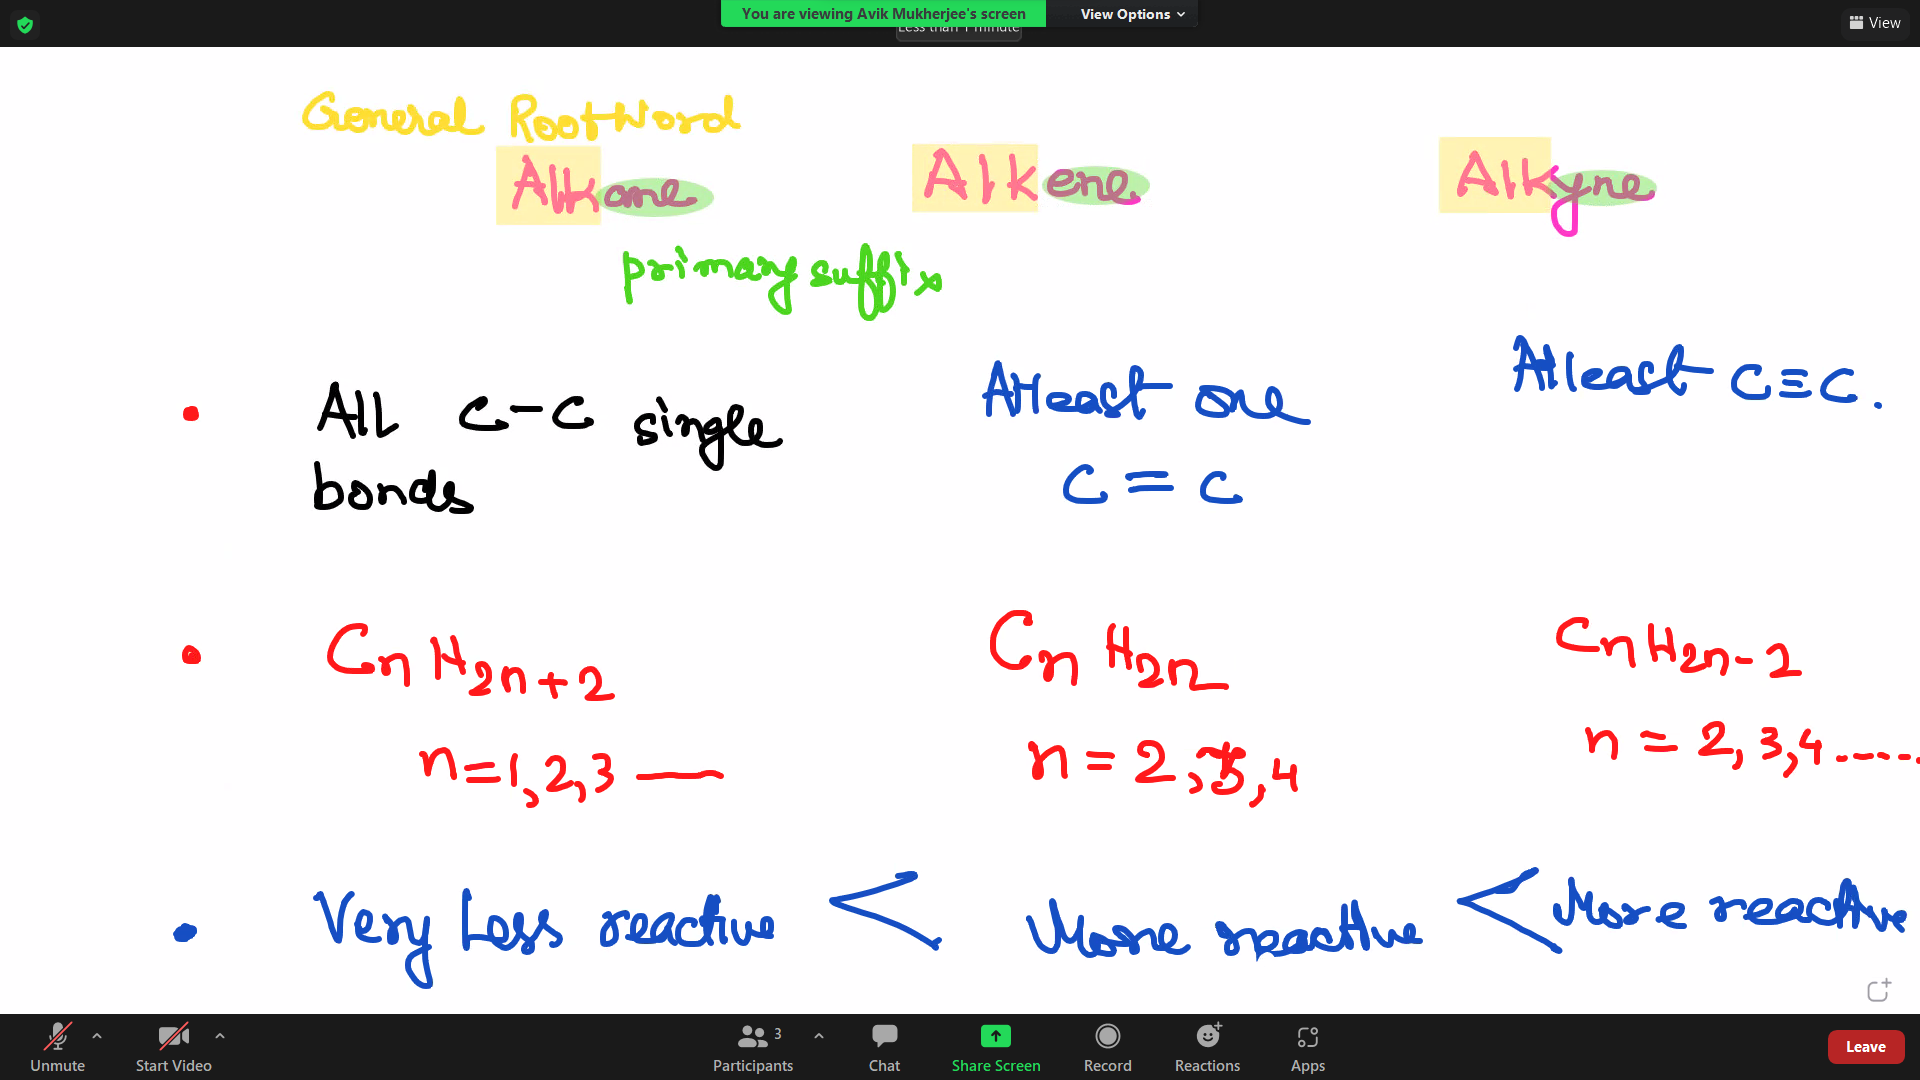 You are viewing Avik Mukherjee's screen View Options
Less than 1 minute
View
General Root Word
Alkane Alkene Alkyne
primary suffix
All C-C single
bonds
Atleast one
C=C
Atleast C≡C.
CnH2n+2 CnH2n CnH2n-2
n=1,2,3 —— n=2,3,4 n=2,3,4.....
Very Less reactive < More reactive < More reactive
Unmute Start Video Participants 3 Chat Share Screen Record Reactions Apps Leave